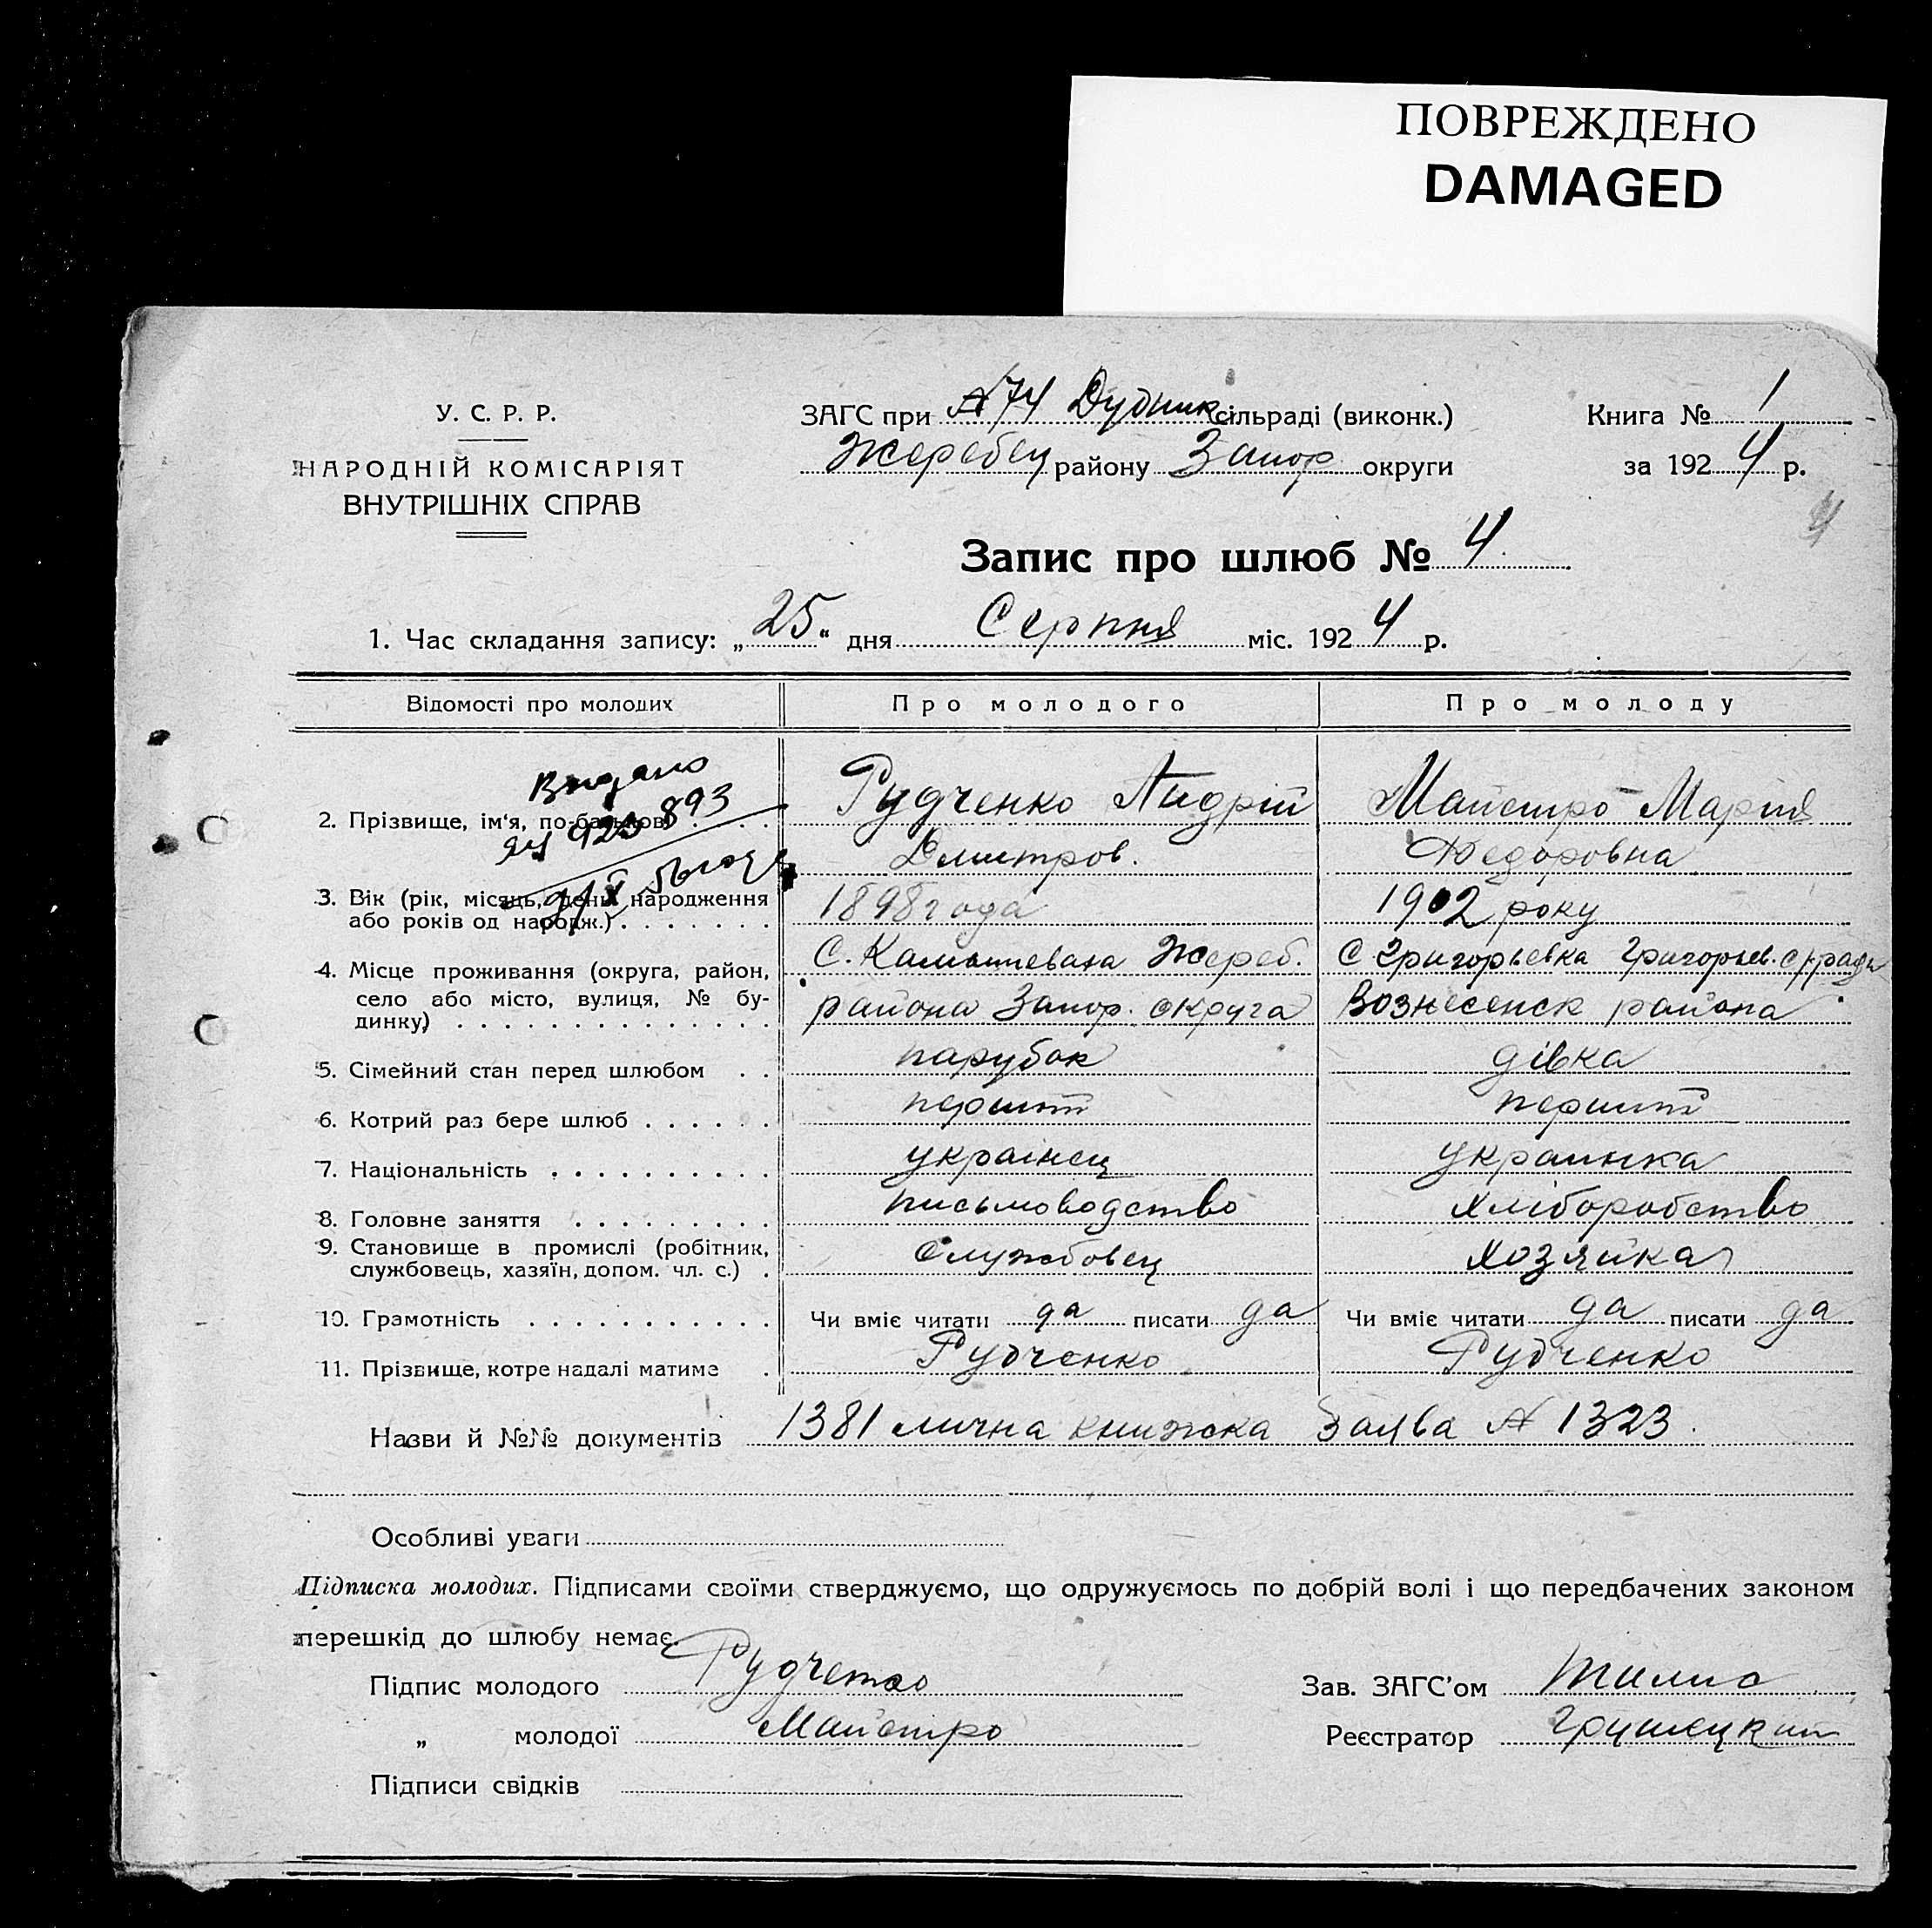 ПОВРЕЖДЕНО
DAMAGED
У. С. Р. Р.
НАРОДНІЙ КОМІСАРІЯТ
ВНУТРІШНІХ СПРАВ
ЗАГС при №74 Дудник сільраді (виконк.)
Жеребец району Запор округи
Книга № 1
за 1924 р.
4
Запис про шлюб № 4
1. Час складання запису: „25“ дня Серпня міс. 1924 р.
Відомості про молодих Про молодого Про молоду
Видано
893
2. Прізвище, ім‘я, по-батькові Рудченко Андрій Майстро Мария
Дмитров. Федоровна
3. Вік (рік, місяць, день народження 1898 года 1902 року
або років од народж.)
4. Місце проживання (округа, район, С. Камышеваха Жереб. С Григорьевка Григорьев. с/ради
село або місто, вулиця, № бу- района Запор. округа Вознесенск района
динку)
5. Сімейний стан перед шлюбом парубок дівка
6. Котрий раз бере шлюб перший перший
7. Національність українец украинка
8. Головне заняття письмоводство хліборобство
9. Становище в промислі (робітник, Службовец хозяйка
службовець, хазяїн, допом. чл. с.)
10. Грамотність Чи вміє читати да писати да Чи вміє читати да писати да
11. Прізвище, котре надалі матиме Рудченко Рудченко
Назви й №№ документів 1381 лична книжка Заява № 1323.
Особливі уваги
Підписка молодих. Підписами своїми стверджуємо, що одружуємось по добрій волі і що передбачених законом
перешкід до шлюбу немає.
Підпис молодого Рудченко Зав. ЗАГС’ом
„ молодої Майстро Реєстратор Грушецкий
Підписи свідків